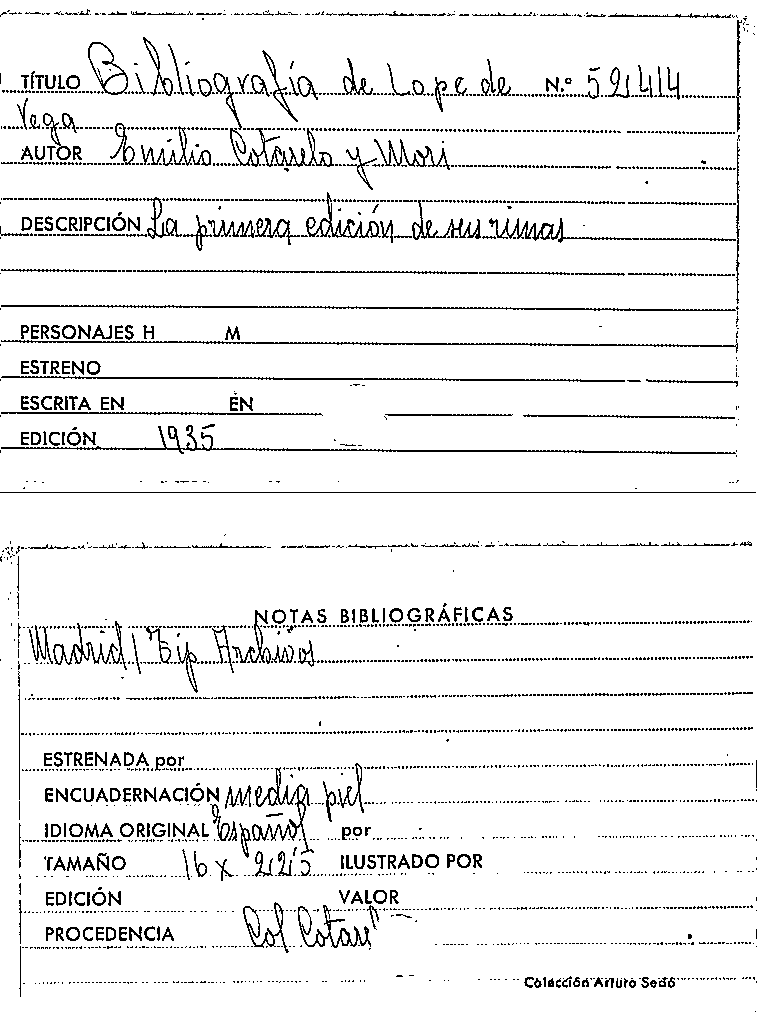 TÍTULO Bibliografía de Lope de N.º 59414
Vega
AUTOR Emilio Cotarelo y Mori
DESCRIPCIÓN La primera edición de sus rimas
PERSONAJES H M
ESTRENO
ESCRITA EN EN
EDICIÓN 1935
NOTAS BIBLIOGRÁFICAS
Madrid / Tip Archivos
ESTRENADA por
ENCUADERNACIÓN media piel
IDIOMA ORIGINAL Español por
TAMAÑO 16 x 22'5 ILUSTRADO POR
EDICIÓN VALOR
PROCEDENCIA Col Cotarº
Colección Arturo Sedó